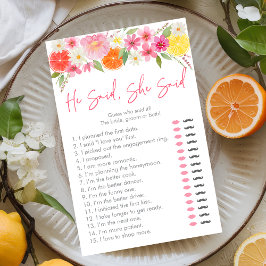 He Said, She Said
Guess who said it!
The bride, groom or both!
1. I planned the first date.
2. I said "I love you" first.
3. I picked out the engagement ring.
4. I proposed.
5. I am more romantic.
6. I'm planning the honeymoon.
7. I'm the better cook.
8. I'm the better dancer.
9. I'm the funny one.
10. I'm the better driver.
11. I initiated the first kiss.
12. I take longer to get ready.
13. I'm the neat one.
14. I'm more patient.
15. I love to sleep more.